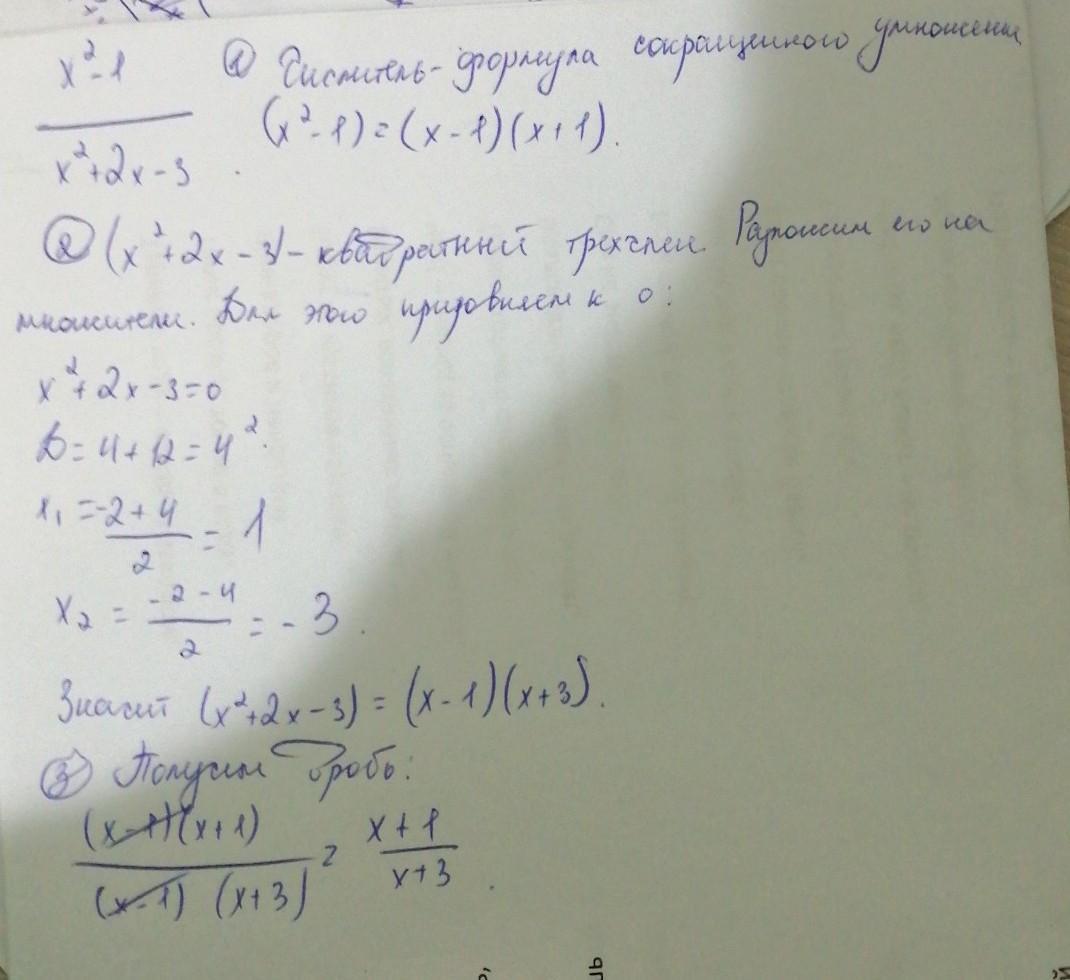 x²-1 / x²+2x-3
① Числитель-формула сокращенного умножения
(x²-1)=(x-1)(x+1).
② (x²+2x-3)-квадратный трехчлен. Разложим его на
множители. Для этого приравняем к 0:
x²+2x-3=0
D=4+12=4².
x₁=-2+4/2=1
x₂=-2-4/2=-3.
Значит (x²+2x-3)=(x-1)(x+3).
③ Получим дробь:
(x-1)(x+1)/(x-1)(x+3)=x+1/x+3.